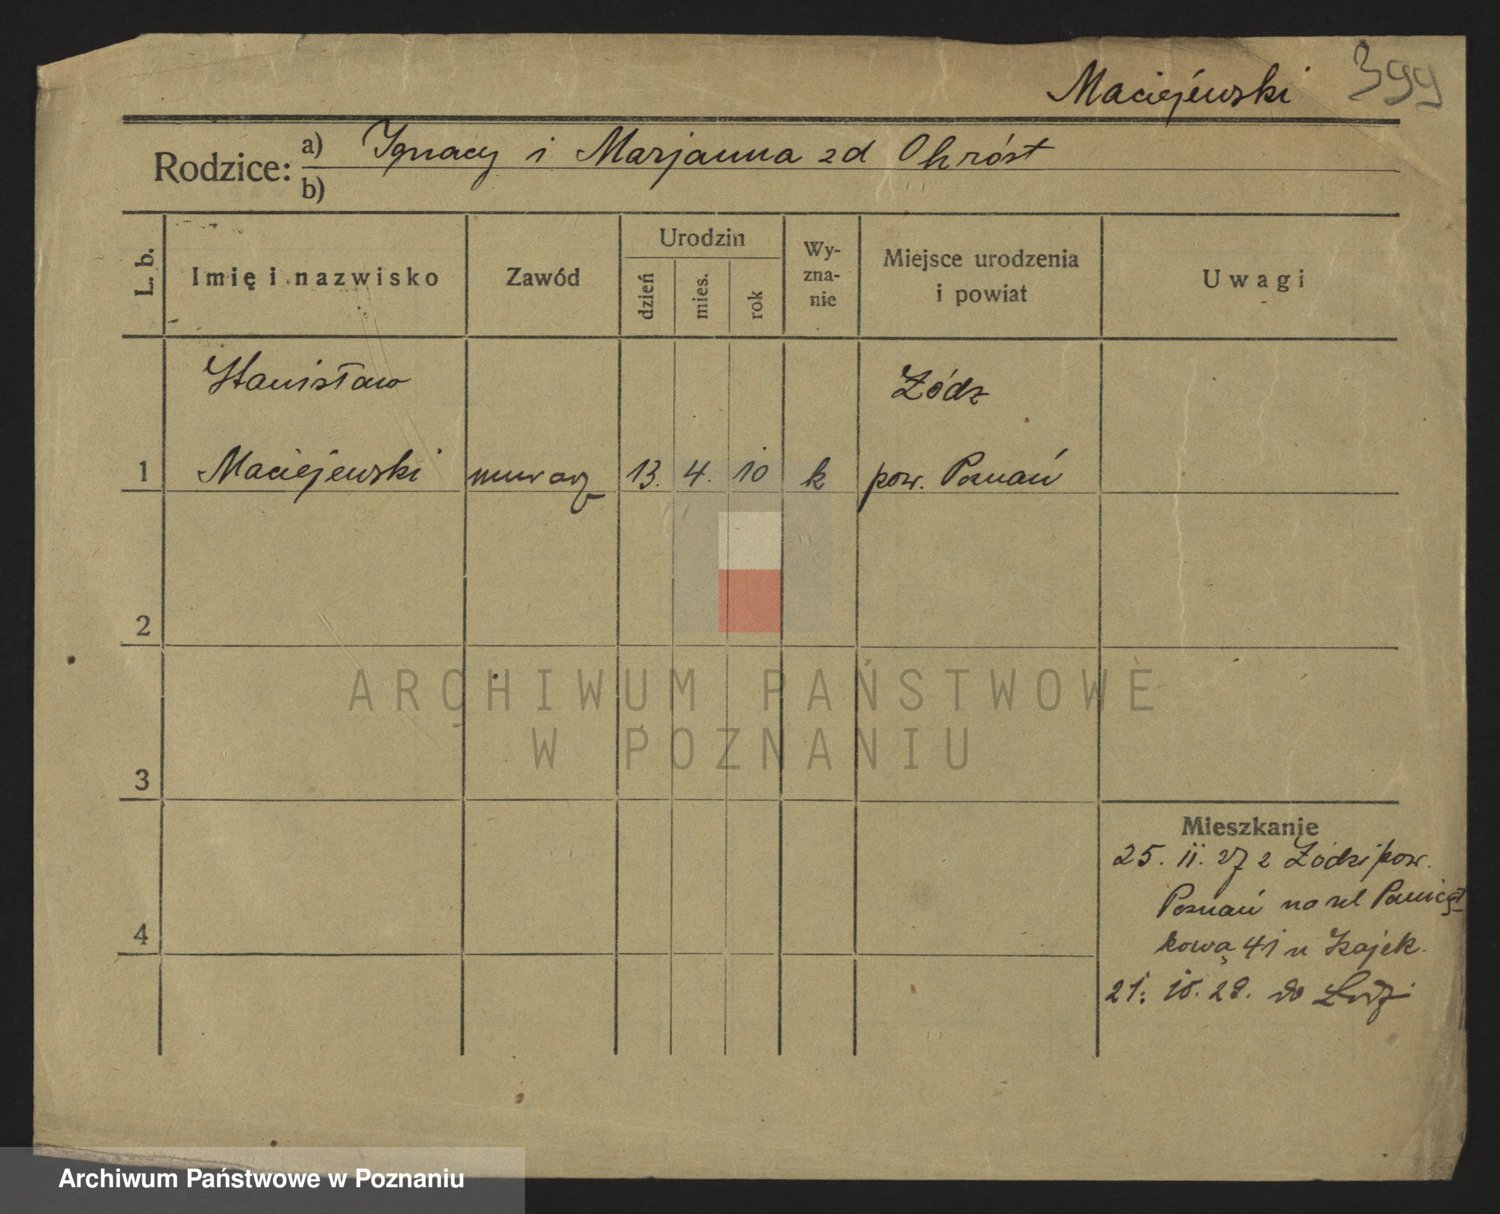 Maciejewski 399
Rodzice: a) Ignacy i Marjanna zd Chróst
b)
L. b.
Imię i nazwisko
Zawód
Urodzin
dzień
mies.
rok
Wy-
zna-
nie
Miejsce urodzenia
i powiat
Uwagi
Stanisław
Łódz
1 Maciejewski murarz 13. 4. 10 k pow. Poznań
2
3
4
Mieszkanie
25. II. 27 z Łódzi pow.
Poznań na ul Pamiąt-
kową 41 u
21. 10. 28. do Łodzi
ARCHIWUM PAŃSTWOWE
W POZNANIU
Archiwum Państwowe w Poznaniu